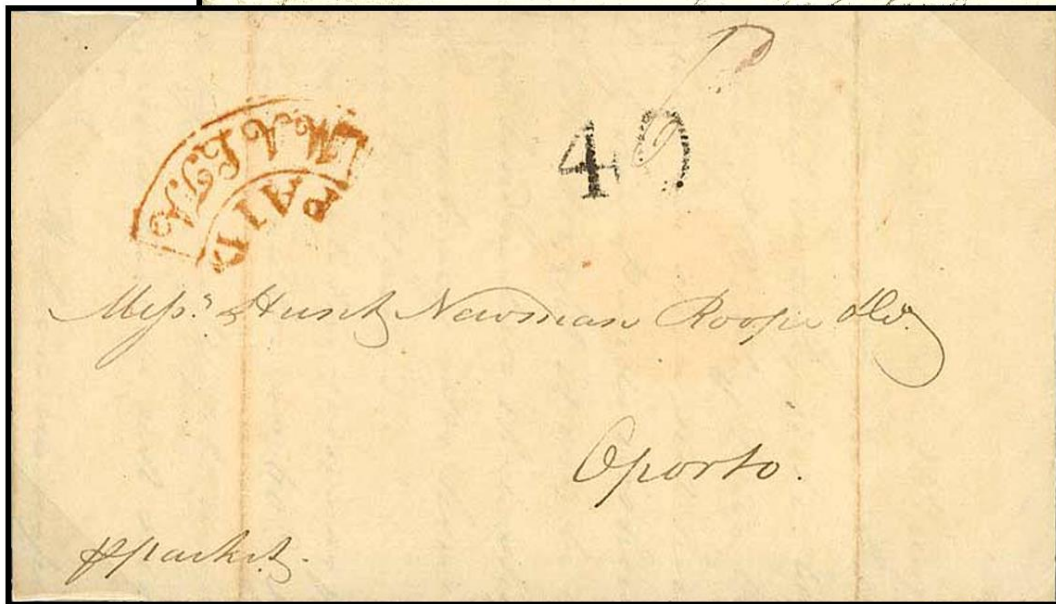 MALTA
PAID
40
Messrs. Hunt Newman Roope &Co.
Oporto.
p packet.